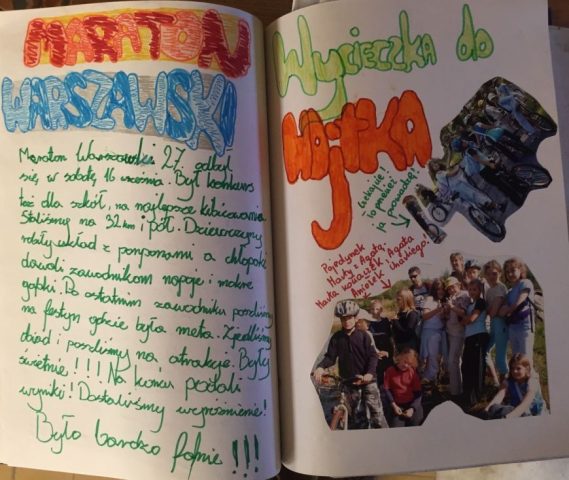 MARATON
WARSZAWSKI
Maraton Warszawski 27 odbył
się w sobotę 16 września. Był konkurs
też dla szkół, na najlepsze kibicowanie.
Staliśmy na 32 km i pół. Dziewczyny
robiły układ z pomponami a chłopaki
dawali zawodnikom napoje i mokre
gąbki. Po ostatnim zawodniku poszliśmy
na festyn gdzie była meta. Zjedliśmy
obiad i poszliśmy na atrakcje. Były
świetnie!!!! Na końcu podali
wyniki! Dostaliśmy wyróżnienie!
Było bardzo fajnie!!!
Wycieczka do
Wojtka
to przecież
ja prowadzę!
Pojedynek
Marty z Agatą.
Marta kontra Agata